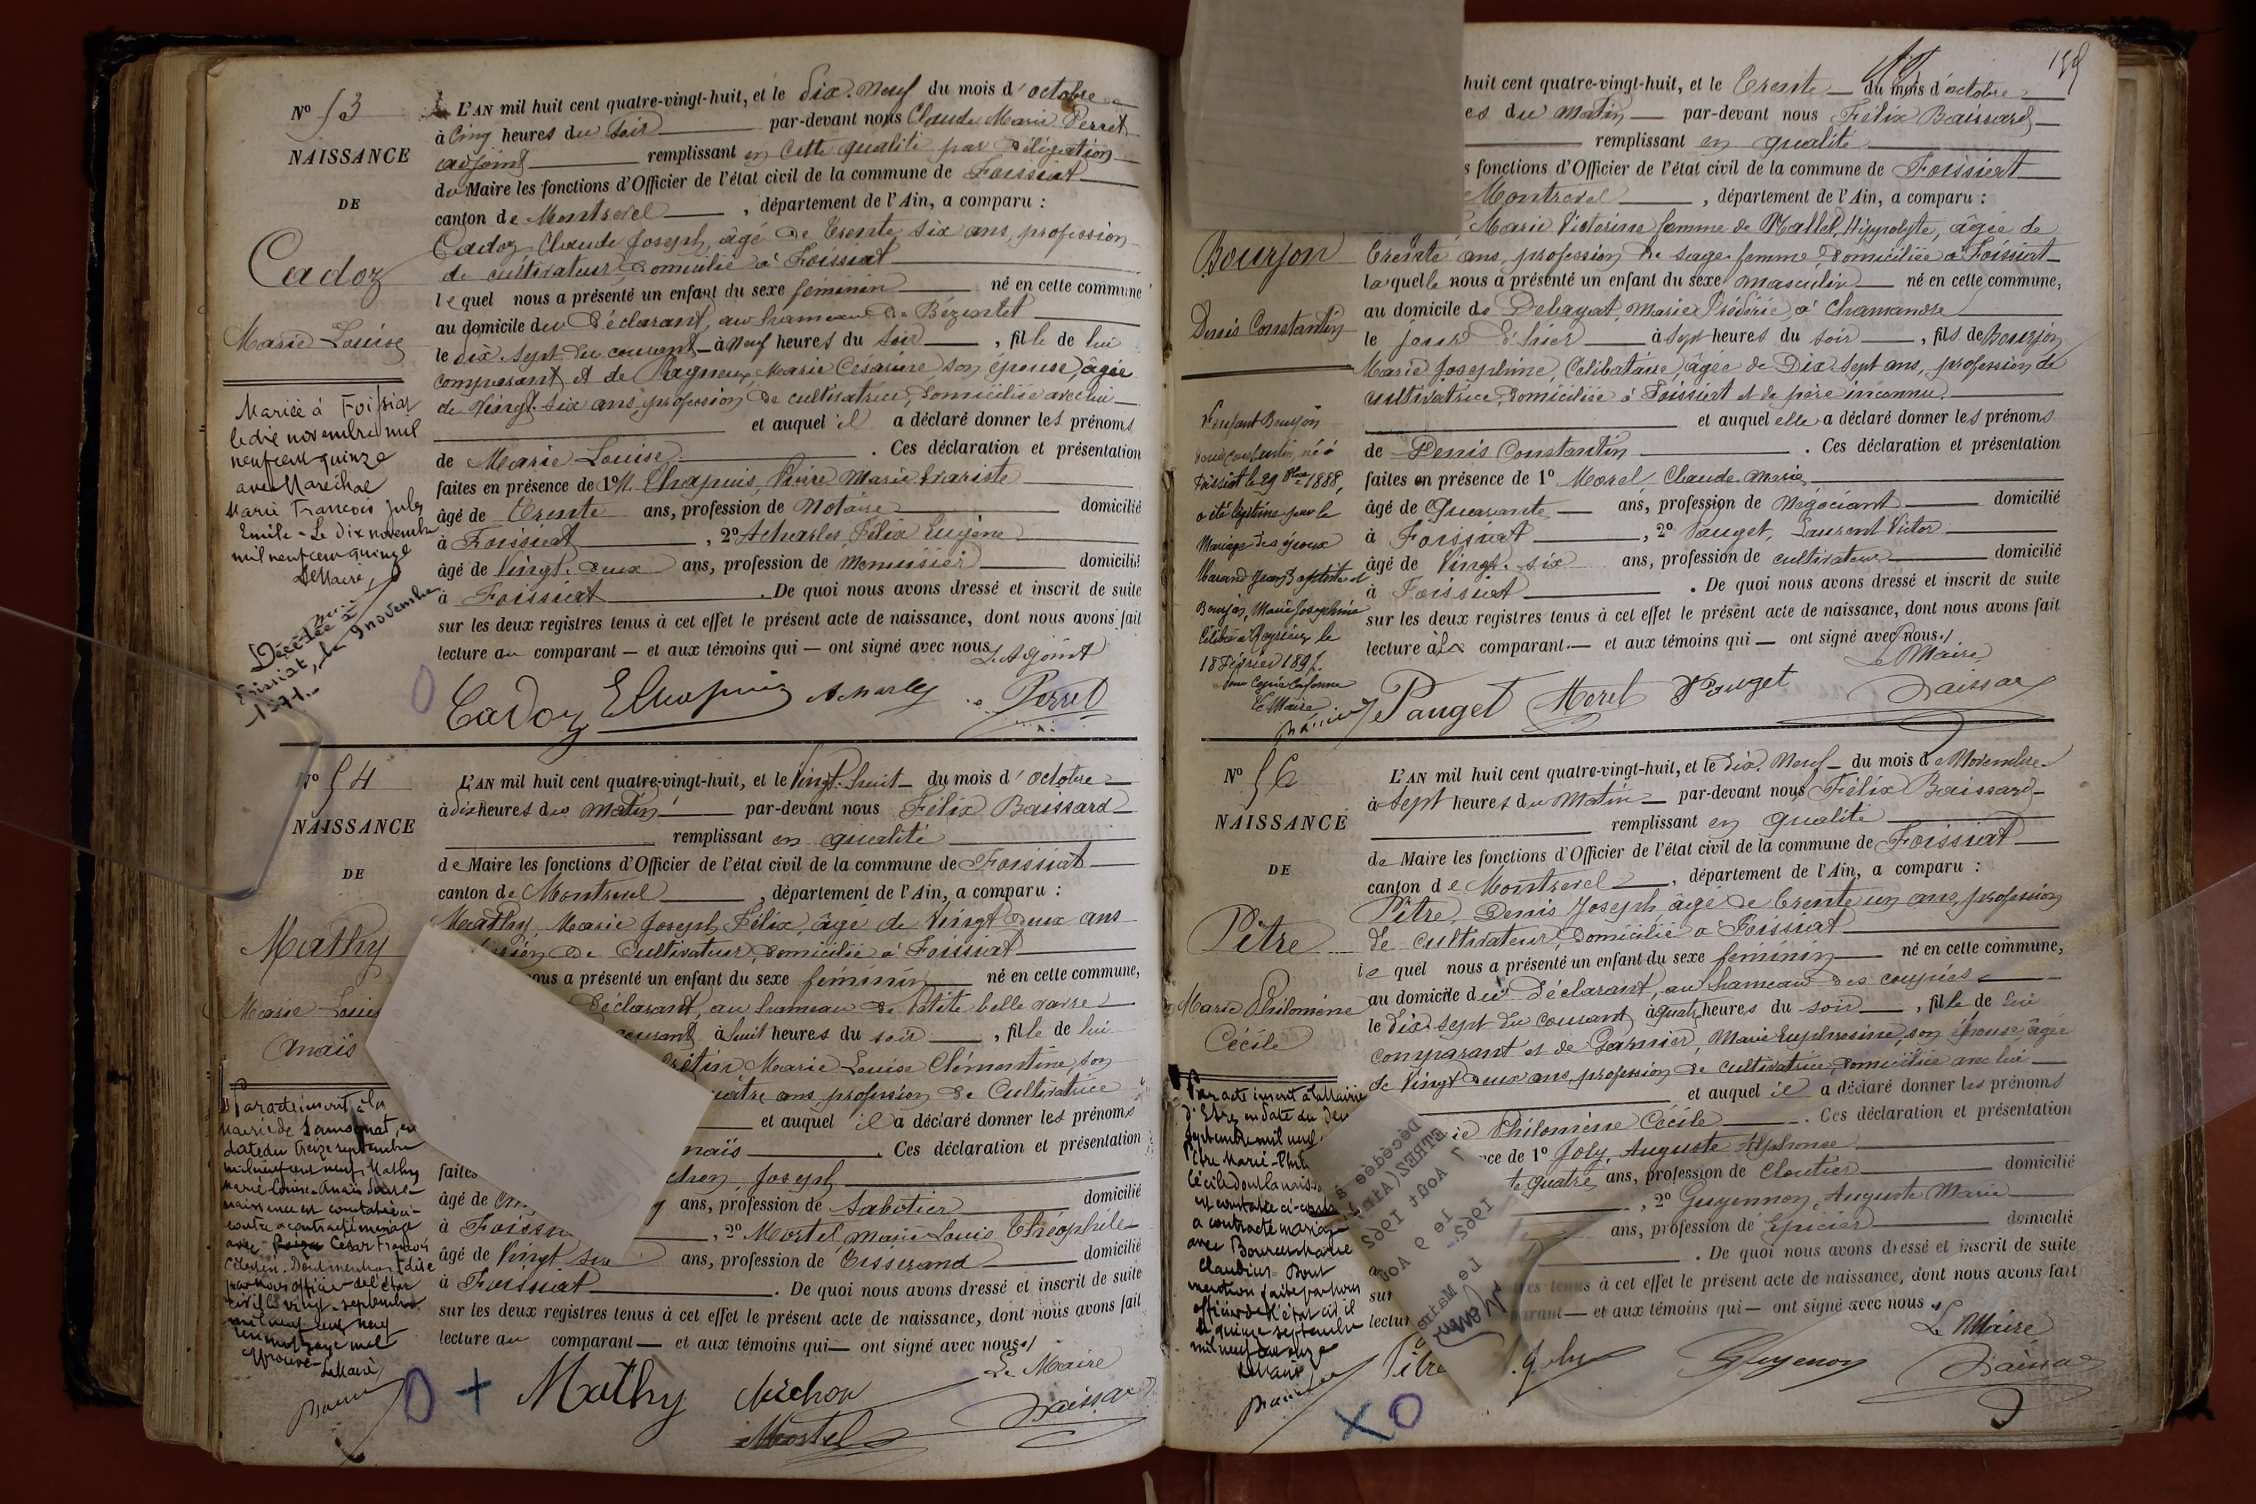 N° 53
NAISSANCE
DE
Cadoz
Marie Louise
Mariée à Foissiat
le dix novembre mil
neuf cent quinze
avec Maréchal
Marie François Jules
Emile - Le dix novembre
mil neuf cent quinze
Le Maire,
Décédée à
Foissiat, le 9 novembre
1971.-
L'AN mil huit cent quatre-vingt-huit, et le Dix-Neuf du mois d'octobre
à Cinq heures du soir par-devant nous Claude Marie Perret
adjoint remplissant en cette qualité par délégation
du Maire les fonctions d'Officier de l'état civil de la commune de Foissiat
canton de Montrevel, département de l'Ain, a comparu :
Cadoz Claude Joseph, âgé de trente six ans, profession
de cultivateur, domicilié à Foissiat
lequel nous a présenté un enfant du sexe féminin né en cette commune
au domicile du déclarant, au hameau de Bézentet
le dix-sept du courant à neuf heures du soir, fille de lui
comparant et de Pagneux, Marie Césarine son épouse, âgée
de vingt-six ans, profession de cultivatrice, domiciliée avec lui
et auquel il a déclaré donner les prénoms
de Marie Louise. Ces déclaration et présentation
faites en présence de 1° M. Chapuis, Pierre Marie Evariste
âgé de Trente ans, profession de Notaire domicilié
à Foissiat, 2° Acharles, Félix Eugène
âgé de Vingt-deux ans, profession de Menuisier domicilié
à Foissiat. De quoi nous avons dressé et inscrit de suite
sur les deux registres tenus à cet effet le présent acte de naissance, dont nous avons fait
lecture au comparant — et aux témoins qui — ont signé avec nous
L'Adjoint
Cadoz E Chapuis Acharles Perret
N° 54
NAISSANCE
DE
Mathy
Marie Louis
Anaïs
Par acte inscrit à la
mairie de Samognat, en
date du treize septembre
mil neuf cent neuf, Mathy
Marie Louise-Anaïs dont la
naissance est constatée ci-
contre a contracté mariage
avec César François
Célestin. Dont mention faite
par nous officier de l'état
civil le vingt septembre
mil neuf cent neuf
un mot rayé nul
approuvé
Le Maire
L'AN mil huit cent quatre-vingt-huit, et le Vingt-huit du mois d'octobre
à dix heures du Matin par-devant nous Félix Baissard
remplissant en qualité
de Maire les fonctions d'Officier de l'état civil de la commune de Foissiat
canton de Montrevel, département de l'Ain, a comparu :
Mathy, Marie Joseph Félix, âgé de Vingt deux ans
de cultivateur, domicilié à Foissiat
nous a présenté un enfant du sexe féminin né en cette commune,
déclarant, au hameau de Petite belle vavre
courant à huit heures du soir, fille de lui
Marie Louise Clémentine, son
quatre ans, profession de Cultivatrice
et auquel il a déclaré donner les prénoms
Ces déclaration et présentation
faites Joseph
âgé de ans, profession de Sabotier domicilié
à Foissia, 2° Mortel, Marie Louis Théophile
âgé de Vingt six ans, profession de Tisserand domicilié
à Foissiat. De quoi nous avons dressé et inscrit de suite
sur les deux registres tenus à cet effet le présent acte de naissance, dont nous avons fait
lecture au comparant — et aux témoins qui — ont signé avec nous
Le Maire
Mathy Michon Baissard
Mortel
159
Bourjon
Denis Constantin
L'enfant Bourjon
Denis Constantin, né à
Foissiat le 29 8bre 1888,
a été légitimé par le
Mariage des époux
Marand Jean Baptiste et
Bourjon, Marie Josephine
célébré à Reyssieux le
18 Février 1891.
Pour Copie Conforme
Le Maire
huit cent quatre-vingt-huit, et le Trente du mois d'octobre
es du Matin par-devant nous Félix Baissard
remplissant en qualité
s fonctions d'Officier de l'état civil de la commune de Foissiat
e Montrevel, département de l'Ain, a comparu :
Marie Victorine femme de Mallet, Hippolyte, âgée de
trente ans, profession de sage-femme domiciliée à Foissiat
laquelle nous a présenté un enfant du sexe masculin né en cette commune,
au domicile de Debayat, Marie Frédéric, à Chamandre
le jour d'hier à sept heures du soir, fils de Bourjon
Marie Josephine, Célibataire, âgée de Dix sept ans, profession de
cultivatrice, domiciliée à Foissiat et de père inconnu
et auquel elle a déclaré donner les prénoms
de Denis Constantin. Ces déclaration et présentation
faites en présence de 1° Morel, Claude Marie
âgé de Quarante ans, profession de Négociant domicilié
à Foissiat, 2° Pauget, Laurent Victor
âgé de Vingt-six ans, profession de cultivateur domicilié
à Foissiat. De quoi nous avons dressé et inscrit de suite
sur les deux registres tenus à cet effet le présent acte de naissance, dont nous avons fait
lecture à la comparant — et aux témoins qui — ont signé avec nous
Le Maire
Pauget Morel Pauget Baissard
N° 56
NAISSANCE
DE
Pitre
Marie Philomène
Cécile
Par acte inscrit à la Mairie
d'Etrez en date du
septembre mil neuf
Pitre Marie-Phil
Cécile dont la naiss
est constatée ci-contre
a contracté mariage
avec
Claudius Dont
mention faite par nous
officier de l'état civil
le quinze septembre
mil neuf cent onze
Le Maire
L'AN mil huit cent quatre-vingt-huit, et le Dix-Neuf du mois de Novembre
à sept heures du Matin par-devant nous Félix Baissard
remplissant en qualité
de Maire les fonctions d'Officier de l'état civil de la commune de Foissiat
canton de Montrevel, département de l'Ain, a comparu :
Pitre, Denis Joseph âgé de trente un ans, profession
de cultivateur, domicilié à Foissiat
lequel nous a présenté un enfant du sexe féminin né en cette commune,
au domicile du déclarant, au hameau des coupées
le dix-sept du courant à quatre heures du soir, fille de lui
comparant et de Garnier, Marie Euphrosine, son épouse âgée
de vingt deux ans, profession de cultivatrice, domiciliée avec lui
et auquel il a déclaré donner les prénoms
ie Philomène Cécile. Ces déclaration et présentation
nce de 1° Joly, Auguste Alphonse
te quatre ans, profession de Cloutier domicilié
, 2° Guyennon, Auguste Marie
ans, profession de Epicier domicilié
. De quoi nous avons dressé et inscrit de suite
sur tres tenus à cet effet le présent acte de naissance, dont nous avons fait
lectur parant — et aux témoins qui — ont signé avec nous
Le Maire
Pitre Joly Guyenon Baissard
Décédée à
ETREZ (Ain)
le 7 Août 1962
le 9 Août 1962.-
Le Maire